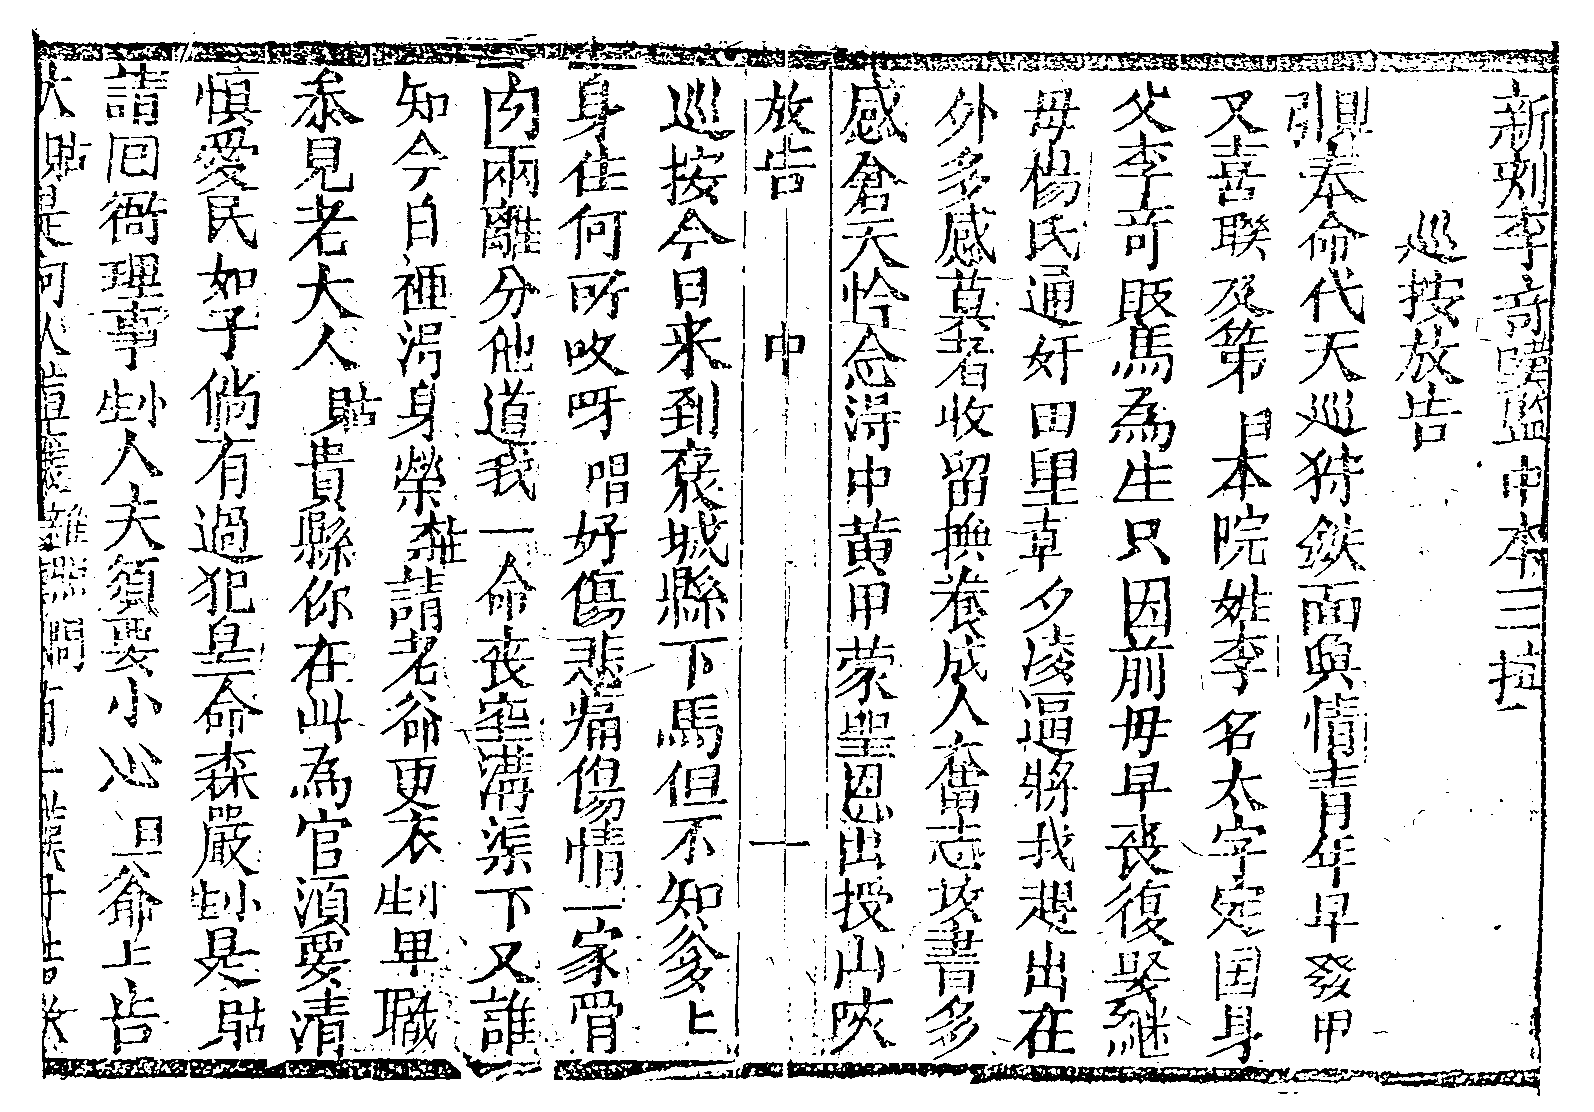 新刻李奇嘆監中本三扳
巡按放告
引奉命代天巡狩鉄面與情青年早發甲
又喜聯及第 本院姓李名太字定国身
父李奇販馬為生只因前母早喪復娶継
母楊氏通奸田里草夕凌逼將我趕出在
外多感莫者收留撫養成人奮志攻書多
感倉天怜念得中黄甲蒙聖恩出授山陝
放告 中 一
巡按今日来到褒城縣下馬但不知爹上
身住何所吹呀唱好傷悲痛傷情一家骨
肉兩離分他道我一命喪空溝渠下又誰
知今日裡得身榮 請老爺更衣 卑職
叅見老大人 貼貴縣你在此為官須要清
慎愛民如子倘有過犯皇命森嚴 是 貼
請回衙理事 人夫須要小心 爺上告